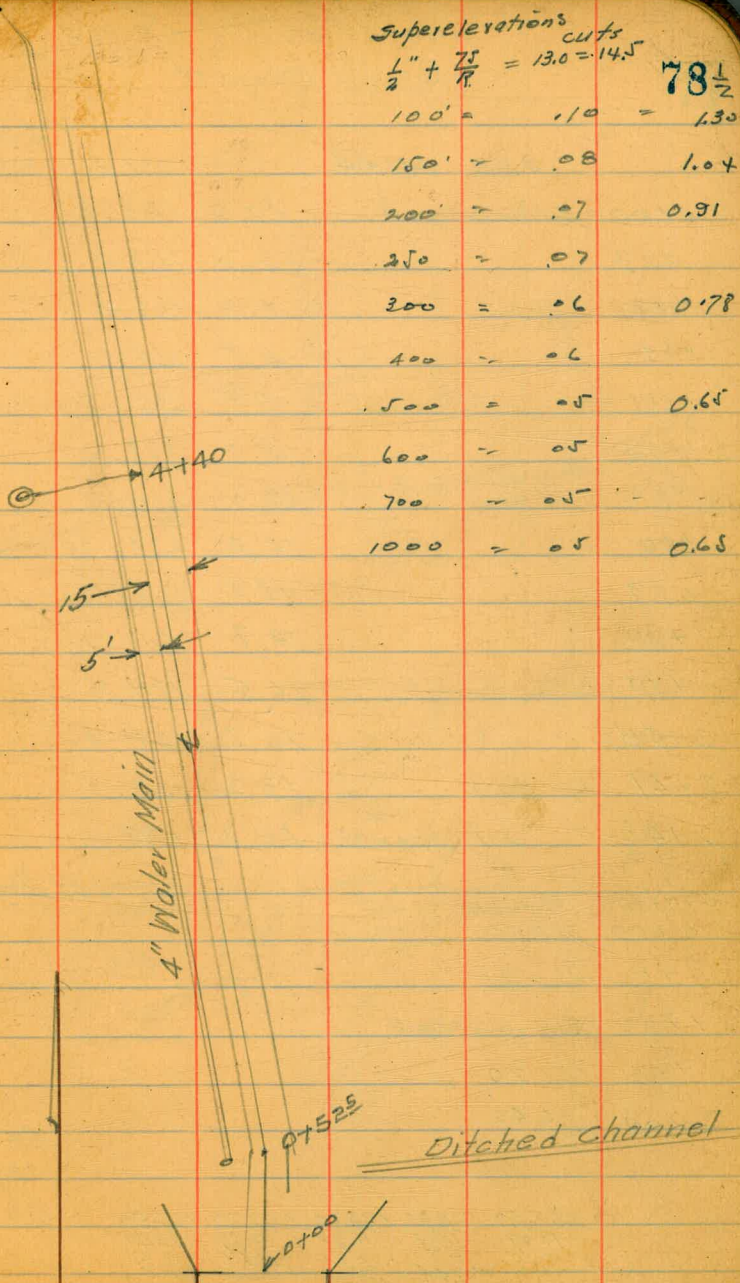 Superelevations
cuts
1/2" + 75/R = 13.0 = 14.5
78 1/2
100' = .10 = 1.30
150' = .08 1.04
200' = .07 0.91
250 = .07
300 = .06 0.78
400 = .06
500 = .05 0.65
600 = .05
700 = .05 - -
1000 = .05 0.65
4+40
15
5'
4" Water Main
0+52⁵
Ditched Channel
0+00